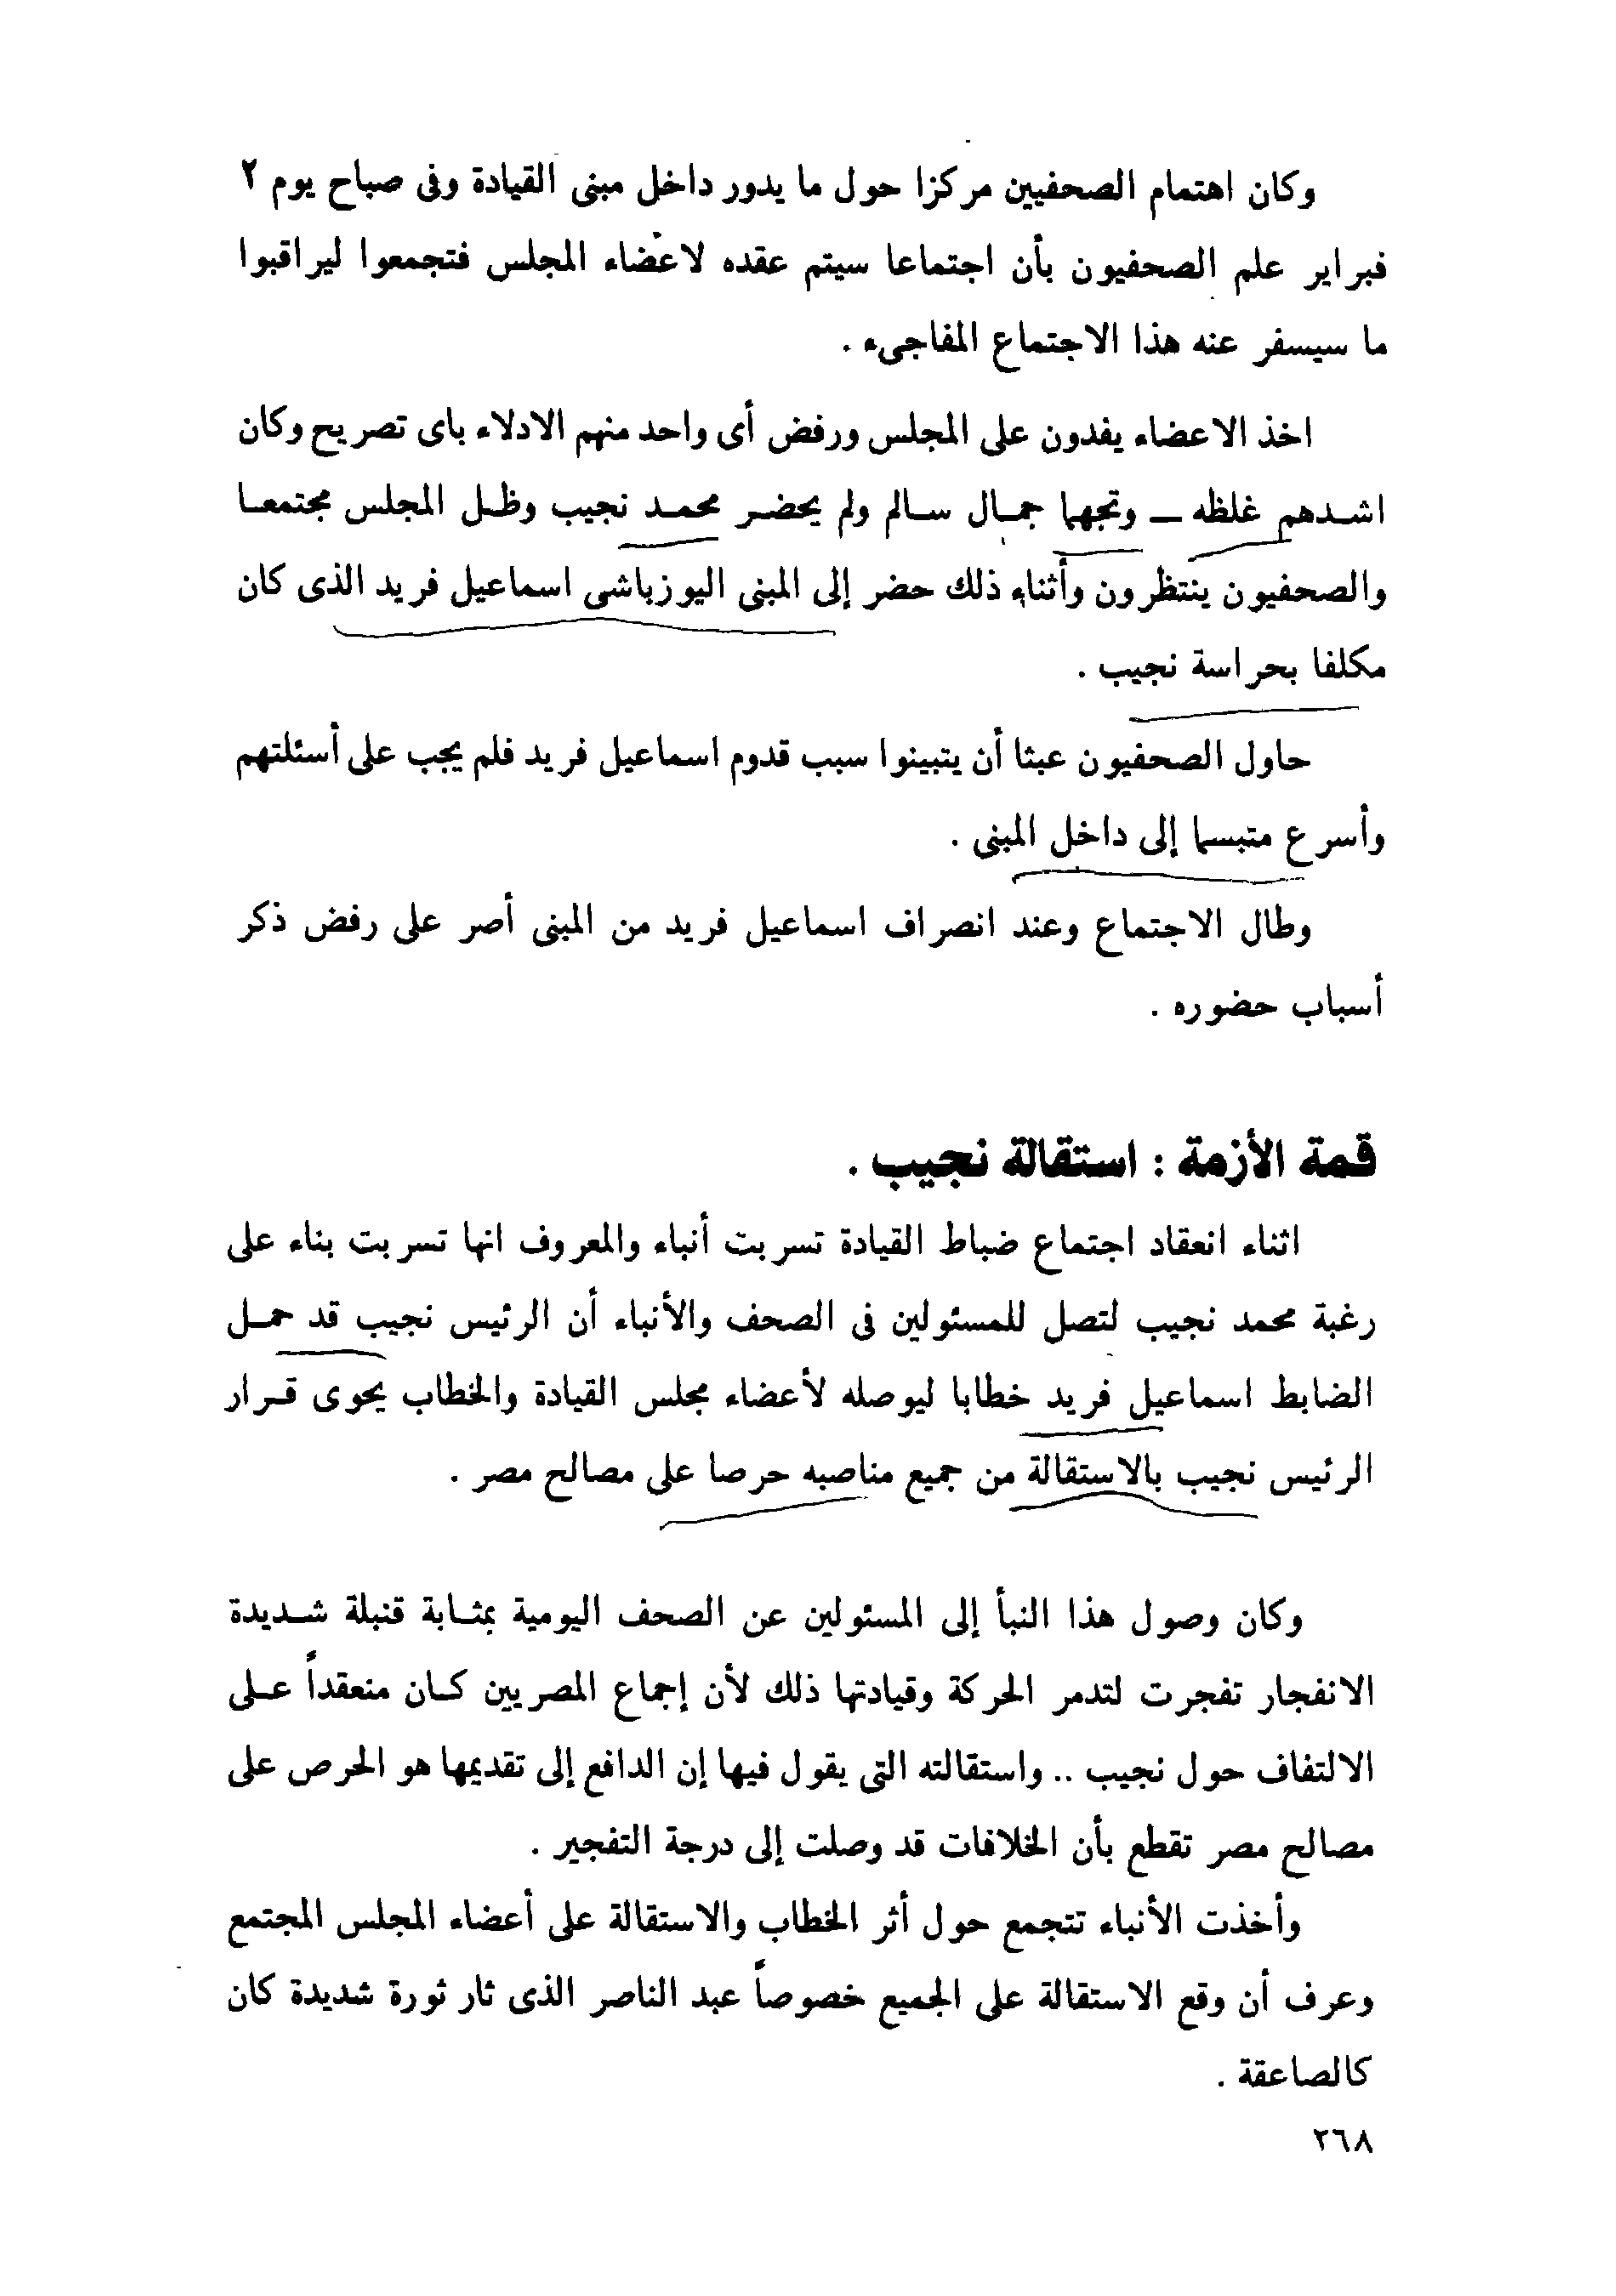 وكان اهتمام الصحفيين مركزا حول ما يدور داخل مبنى القيادة وفى صباح يوم ٢
فبراير علم الصحفيون بأن اجتماعا سيتم عقده لاعضاء المجلس فتجمعوا ليراقبوا
ما سيسفر عنه هذا الاجتماع المفاجىء .
اخذ الاعضاء يفدون على المجلس ورفض أى واحد منهم الادلاء باى تصريح وكان
اشدهم غلظه ــ وتجهما جمال سالم ولم يحضر محمد نجيب وظل المجلس مجتمعا
والصحفيون ينتظرون وأثناء ذلك حضر إلى المبنى اليوزباشى اسماعيل فريد الذى كان
مكلفا بحراسة نجيب .
حاول الصحفيون عبثا أن يتبينوا سبب قدوم اسماعيل فريد فلم يجب على أسئلتهم
وأسرع متبسما إلى داخل المبنى .
وطال الاجتماع وعند انصراف اسماعيل فريد من المبنى أصر على رفض ذكر
أسباب حضوره .
قمة الأزمة : استقالة نجيب .
اثناء انعقاد اجتماع ضباط القيادة تسربت أنباء والمعروف انها تسربت بناء على
رغبة محمد نجيب لتصل للمسئولين فى الصحف والأنباء أن الرئيس نجيب قد حمل
الضابط اسماعيل فريد خطابا ليوصله لأعضاء مجلس القيادة والخطاب يحوى قرار
الرئيس نجيب بالاستقالة من جميع مناصبه حرصا على مصالح مصر .
وكان وصول هذا النبأ إلى المسئولين عن الصحف اليومية بمثابة قنبلة شديدة
الانفجار تفجرت لتدمر الحركة وقيادتها ذلك لأن إجماع المصريين كان منعقداً على
الالتفاف حول نجيب .. واستقالته التى يقول فيها إن الدافع إلى تقديمها هو الحرص على
مصالح مصر تقطع بأن الخلافات قد وصلت إلى درجة التفجير .
وأخذت الأنباء تتجمع حول أثر الخطاب والاستقالة على أعضاء المجلس المجتمع
وعرف أن وقع الاستقالة على الجميع خصوصاً عبد الناصر الذى ثار ثورة شديدة كان
كالصاعقة .
٢٦٨